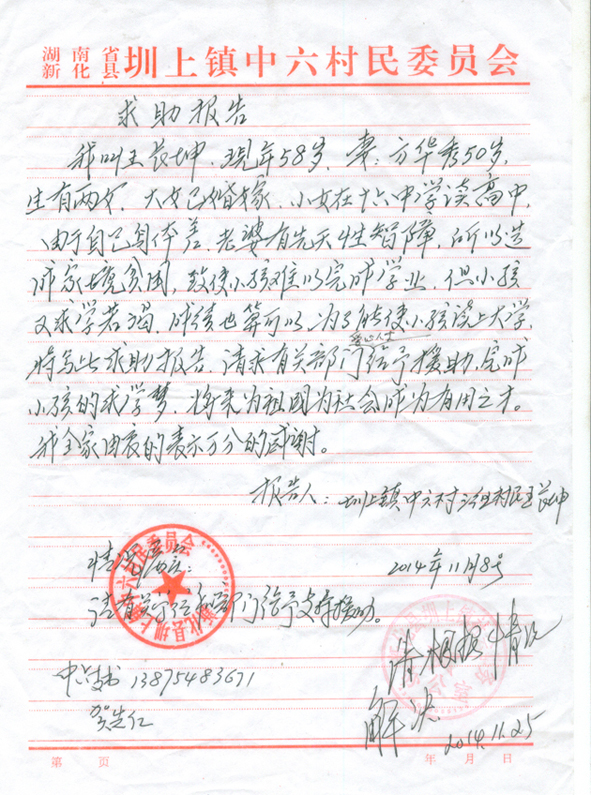 湖南省
新化县 圳上镇中六村民委员会
求助报告
我叫王良坤，现年58岁，妻：方华秀50岁，
生有两女，大女已婚嫁，小女在十六中学读高中，
由于自己身体差，老婆有先天性智障，所以造
成家境贫困，致使小孩难以完成学业，但小孩
又求学若渴，成绩也算可以，为了能使小孩读上大学，
爱心人士
特写此求助报告，请求有关部门给予援助，完成
小孩的求学梦，将来为祖国为社会成为有用之才。
我全家由衷的表示万分的感谢。
报告人：圳上镇中六村 村民王良坤
2014年11月8号
情况属实
请有关 部门给予支持援助。
中六支书 13875483671
贺 仁
请根据情况
解决
2014.11.25
第 页
年 月 日